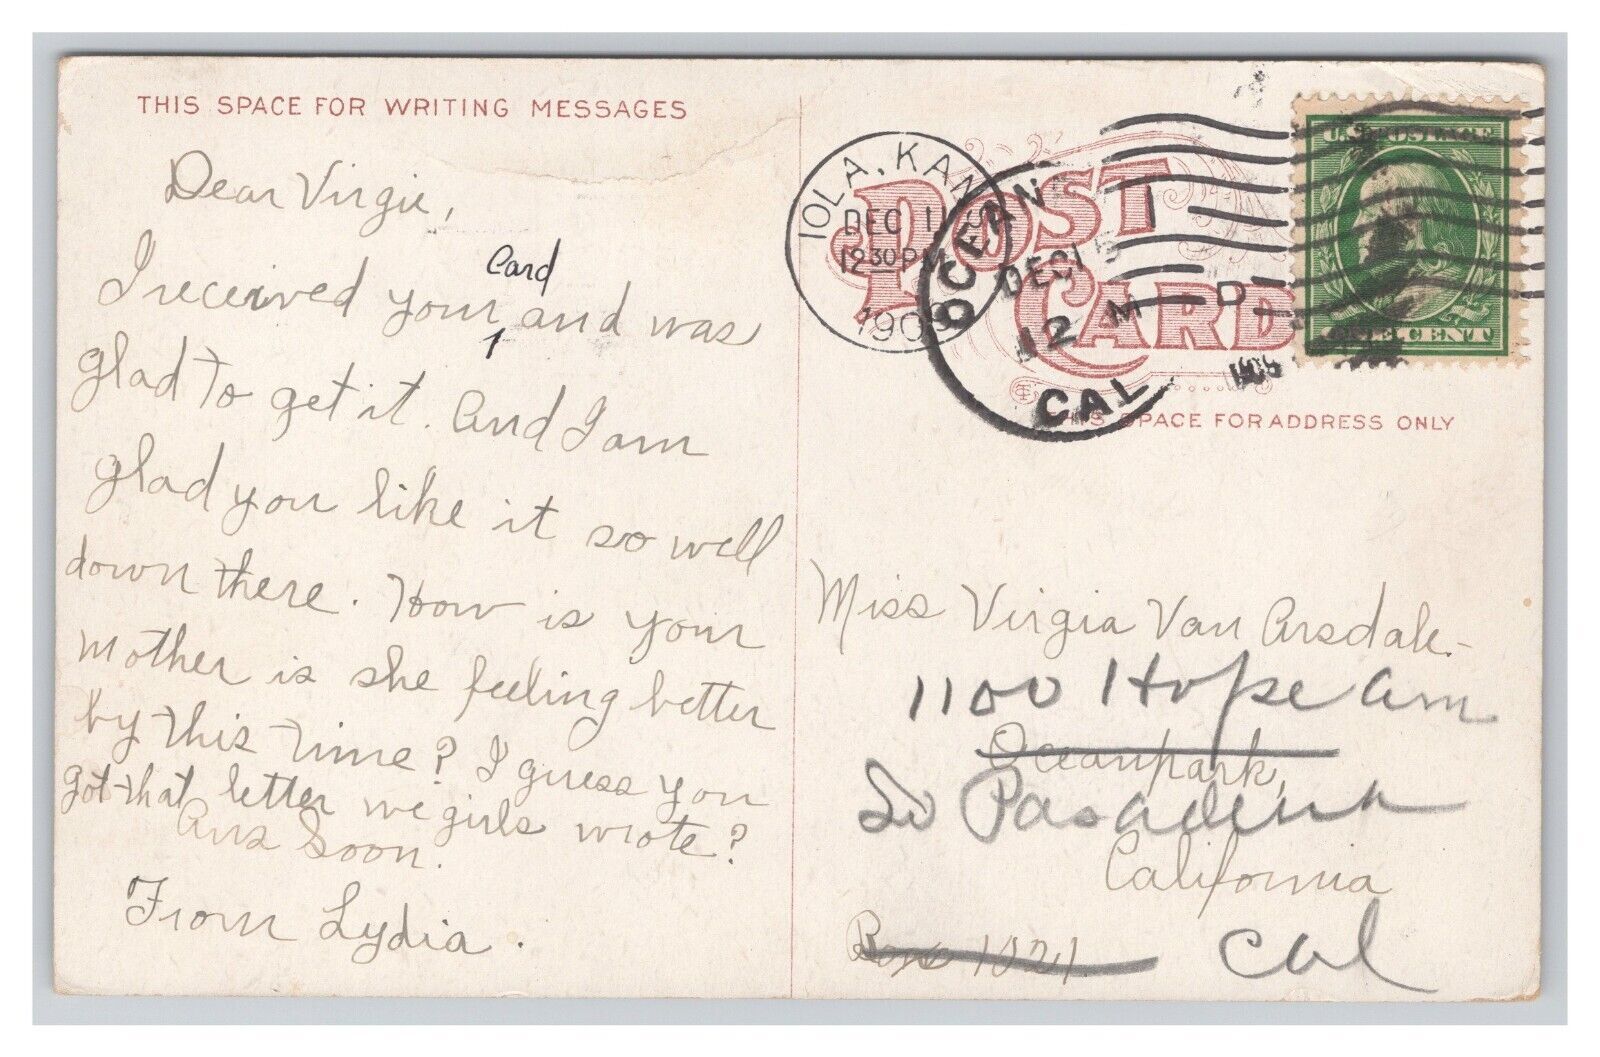 THIS SPACE FOR WRITING MESSAGES
Dear Virgie,
Card
I received your and was
glad to get it. And I am
glad you like it so well
down there. How is your
mother is she feeling better
by this time? I guess you
got that letter we girls wrote?
Ans Soon.
From Lydia.
IOLA, KANS
DEC 11
12 30 PM
OCEAN
DEC 15
12 M
CAL
POST
CARD
U.S. POSTAGE
ONE CENT
THIS SPACE FOR ADDRESS ONLY
Miss Virgia Van Arsdale.
1100 Hope
Oceanpark,
So Pasadena
California
Box 1021.
Cal